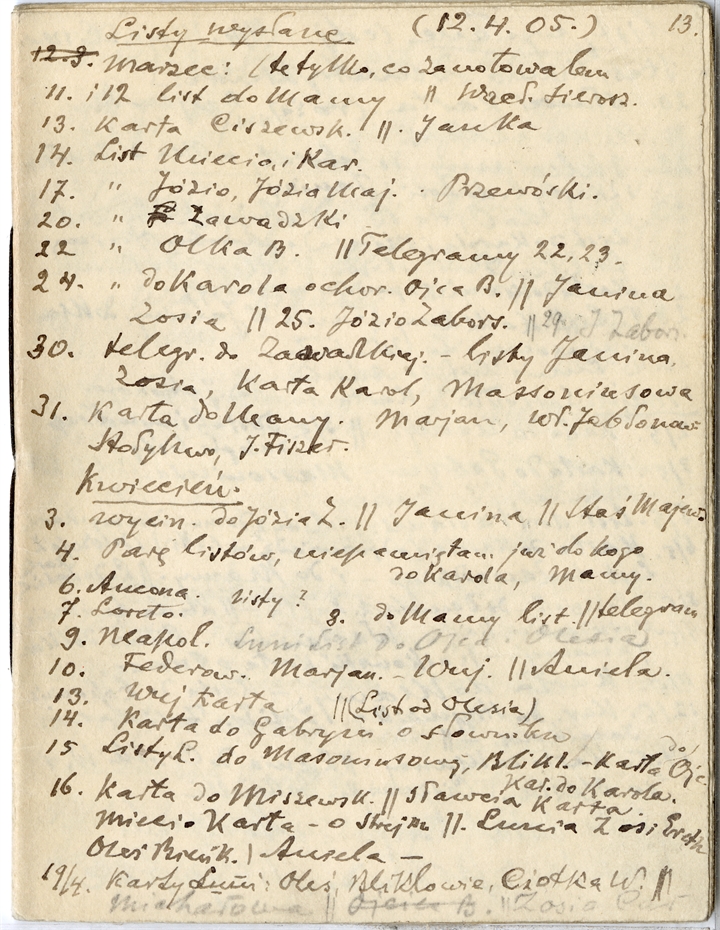 Listy wysłane (12.4.05.) 13.
12.3. Marzec: (te tylko, co zanotowałem
11. i 12 list do Mamy || Wzed. Sierosz.
13. Karta Ciszewsk. ||. Janka
14. List Miecio, i Kar.
17. " Józio, Józia Maj. . Przewóski.
20. " Zawadzki
22 " Olka B. || Telegramy 22, 23.
24. " do Karola o chor. Ojca B. || Janina
Zosia || 25. Józio Zabors. || 29. J Zabor.
30. telegr. do Zawadzkiej. - listy Janina,
Zosia, Karta Karol, Massoniusowa
31. Karta do Mamy. Marjan, Wł. Jabłonow
Stołyhwo, J. Fiszer.
Kwiecień.
3. wycin. do Józia Z. || Janina || Staś Majew.
4. Parę listów, niepamiętam już do kogo
do Karola, Mamy.
6. Ancona. listy?
7. Loreto. 8. do Mamy list. || telegram
9. Neapol. Luni list do Ojca i Olesia
10. Federow. Marjan. - Wuj. || Aniela.
13. Wuj Karta || (List od Olesia)
14. Karta do Gabrysi o słowniku
15 Listy Ł. do Masoniusowej, Blikl. - Karta do Ojc
Kar. do Karola.
16. Karta do Miszewsk. || Sławcia Karta.
Miecio Karta - o strejku ||. Lunia Zosi
Oleś Aniela -
19/4. Karty Luni: Oleś, Bliklowie, Ciotka W. ||
Michałowa || Ojciec B. || Zosia